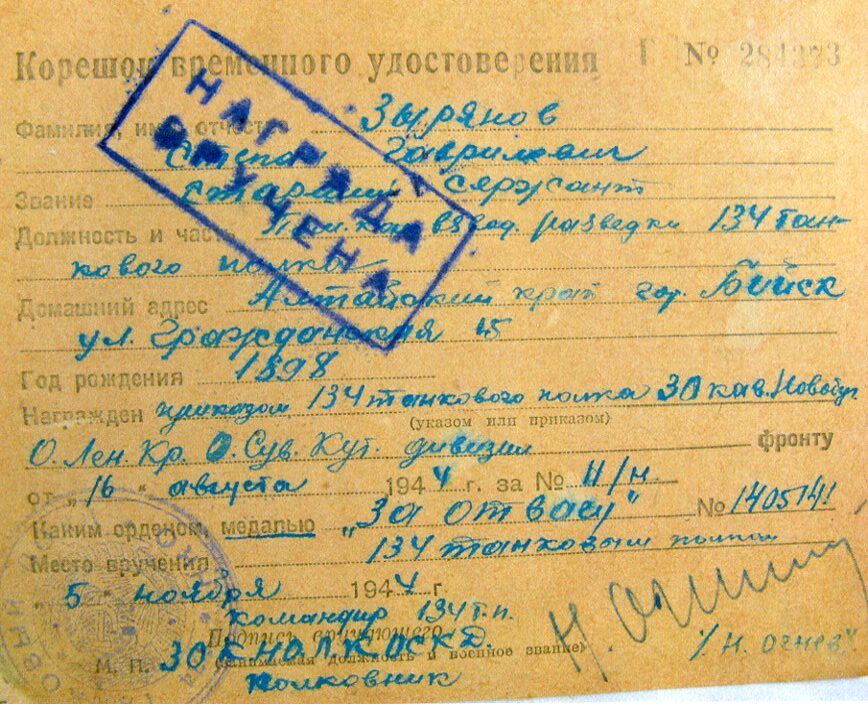 Корешок временного удостоверения Г № 284273
НАГРАДА
ВРУЧЕНА
Фамилия, имя, отчество Зырянов
Степан Гаврилович
Звание старший сержант
Должность и часть взвод. разведки 134 тан-
кового полка
Домашний адрес Алтайский край гор. Бийск
ул. Гражданская 15
Год рождения 1898
Награжден приказом 134 танкового полка 30 кав. Новобуг
(указом или приказом)
О. Лен. Кр. О. Сув. Кут. дивизии фронту
от „16“ августа 1944 г. за № н/н
Каким орденом, медалью „За отвагу“ № 1405141
Место вручения 134 танковым полком
„5“ ноября 1944 г.
командир 134 т.п.
Подпись вручающего
30 КНОЛЖОСКД. /Н. Огнев/
М. П. (занимаемая должность и военное звание)
полковник